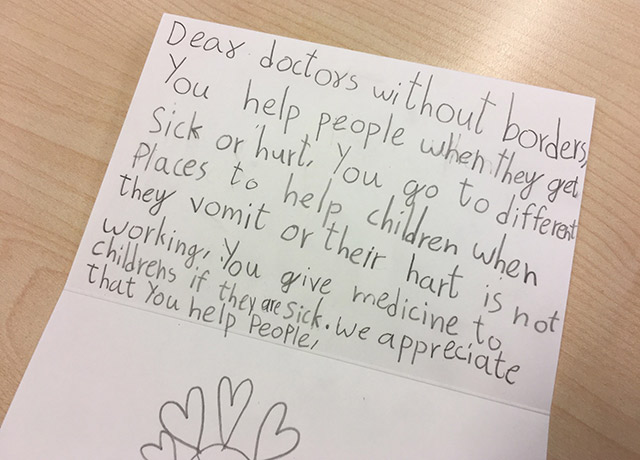 Dear doctors without borders,
You help people when they get
Sick or hurt, You go to different
Places to help children when
they vomit or their hart is not
working, You give medicine to
childrens if they are sick. We appreciate
that You help People,